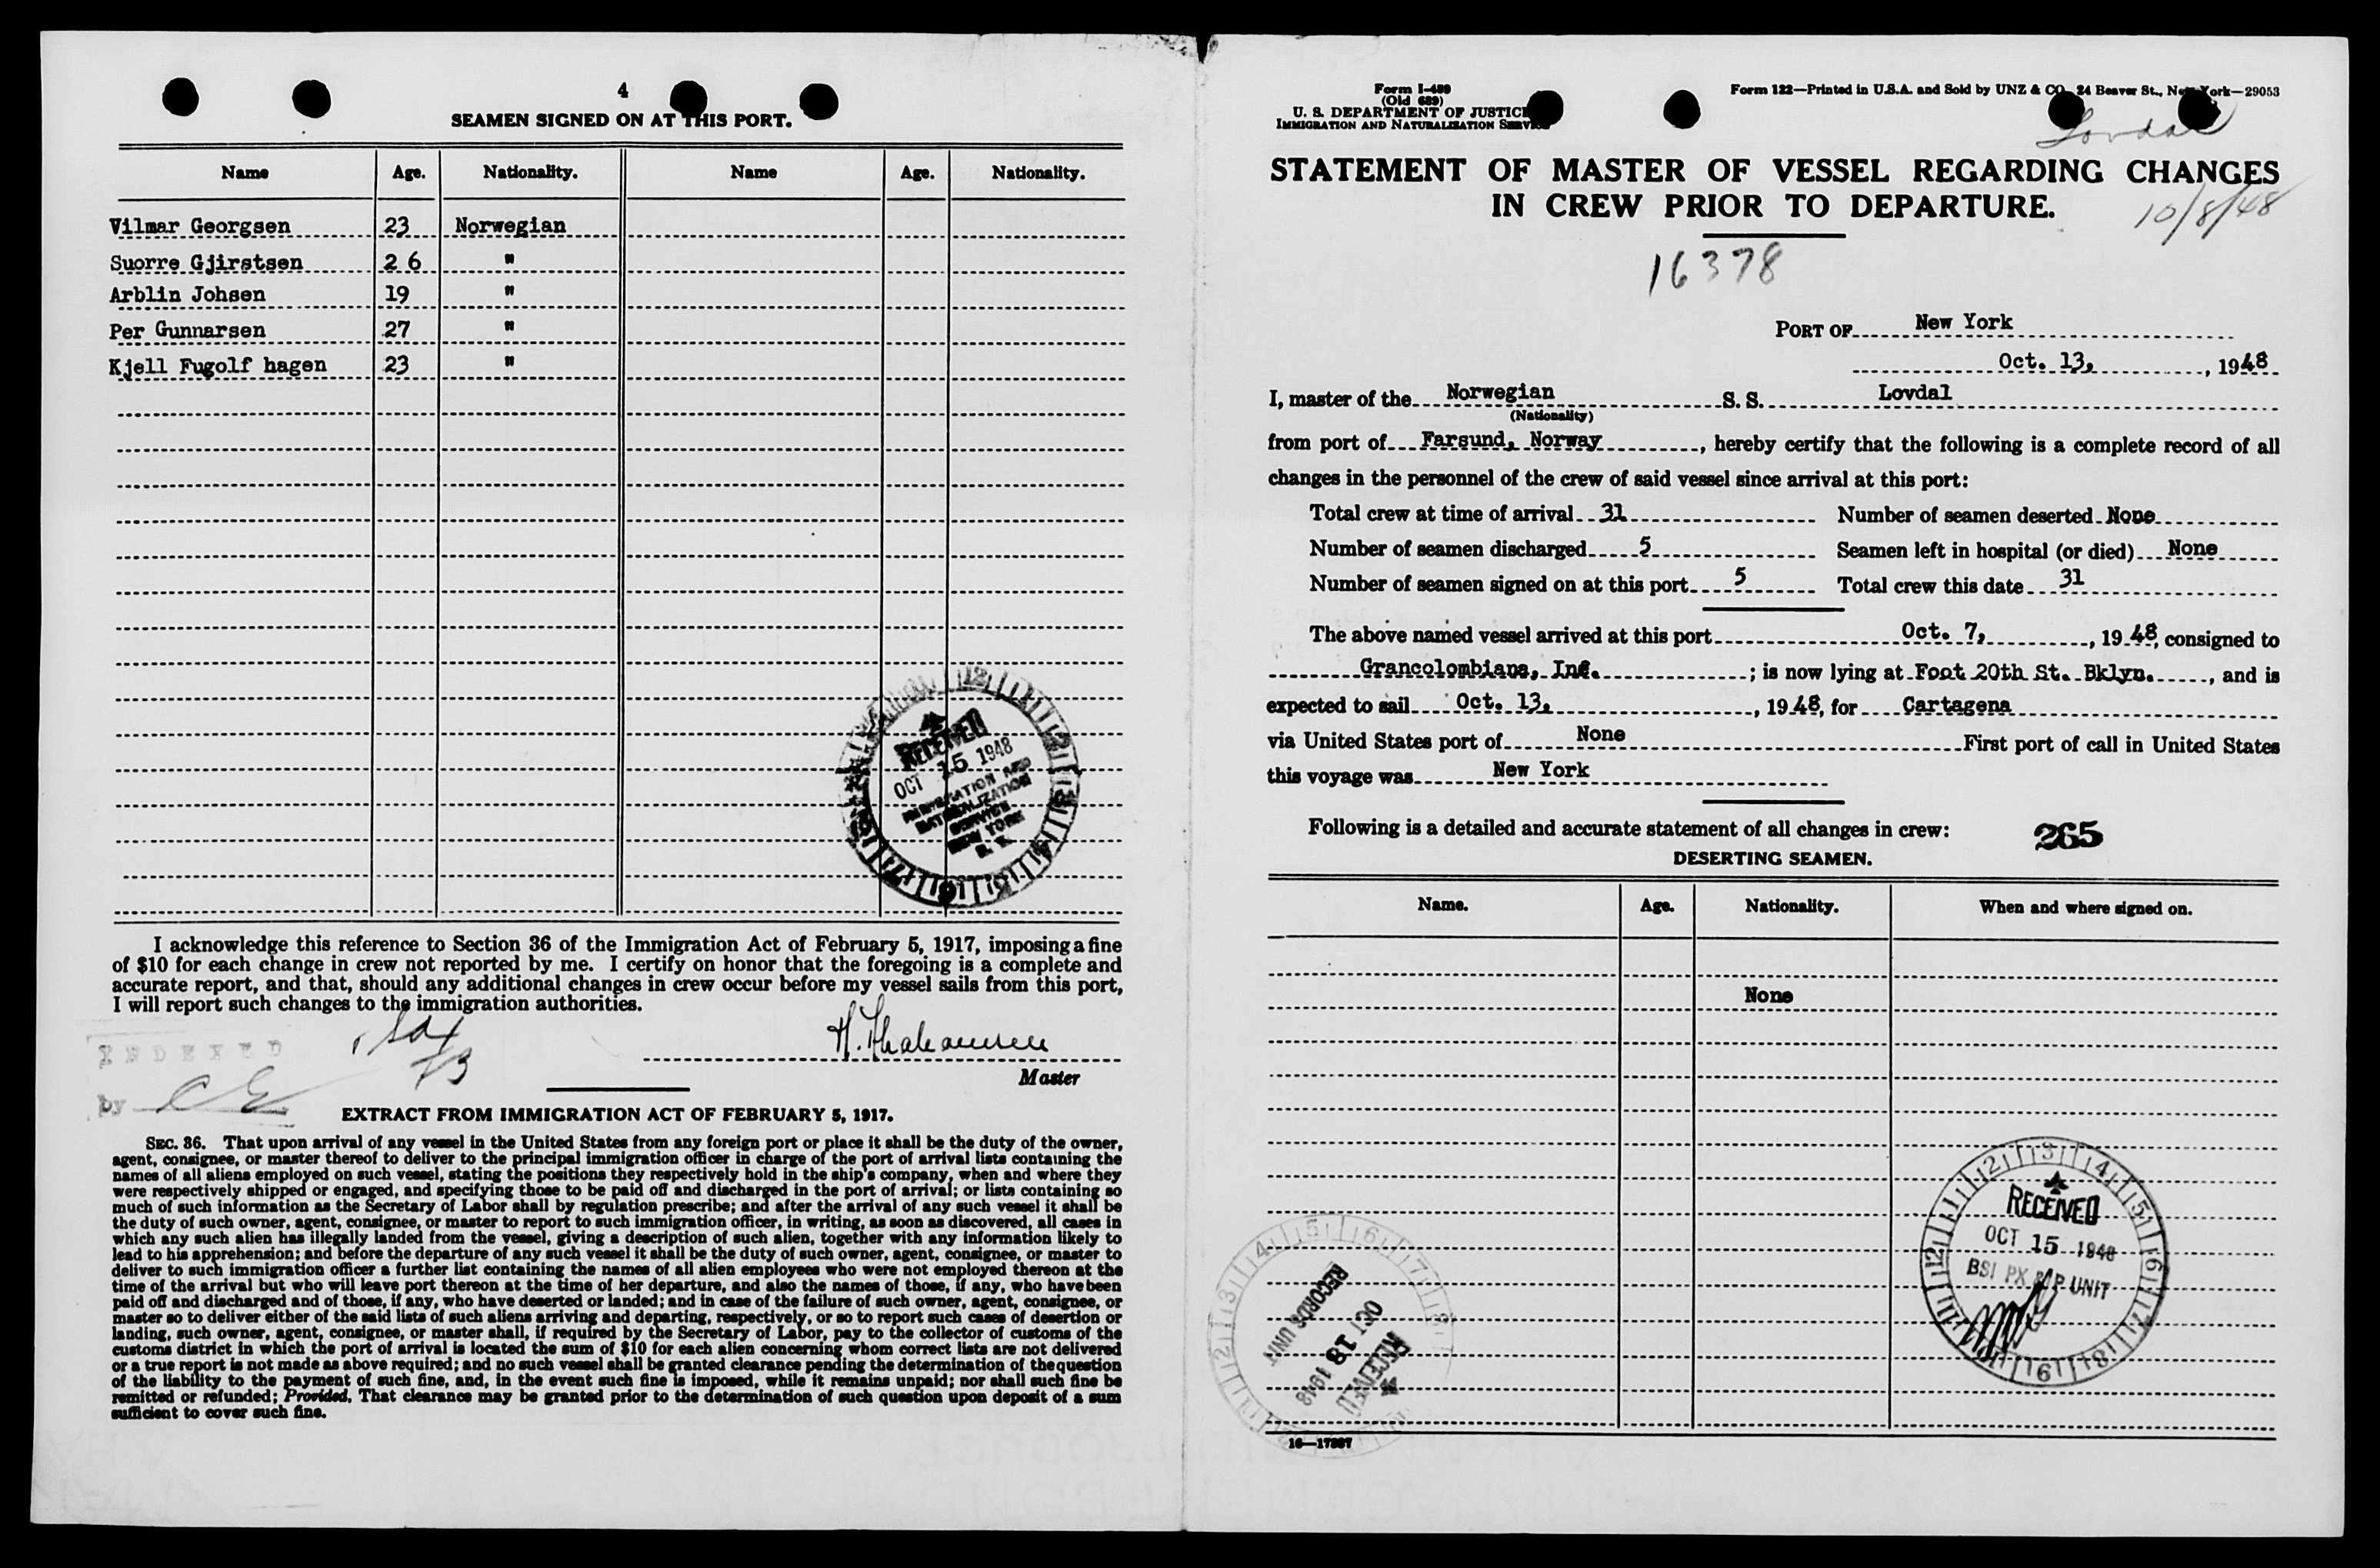 4
SEAMEN SIGNED ON AT THIS PORT.
Name Age. Nationality. Name Age. Nationality.
Vilmar Georgsen 23 Norwegian
Suorre Gjirstsen 26 "
Arblin Johsen 19 "
Per Gunnarsen 27 "
Kjell Fugolf hagen 23 "
RECEIVED
OCT 15 1948
IMMIGRATION AND
NATURALIZATION
SERVICE
NEW YORK
N. Y.
I acknowledge this reference to Section 36 of the Immigration Act of February 5, 1917, imposing a fine
of $10 for each change in crew not reported by me. I certify on honor that the foregoing is a complete and
accurate report, and that, should any additional changes in crew occur before my vessel sails from this port,
I will report such changes to the immigration authorities.
INDEXED
by
Master
EXTRACT FROM IMMIGRATION ACT OF FEBRUARY 5, 1917.
SEC. 36. That upon arrival of any vessel in the United States from any foreign port or place it shall be the duty of the owner,
agent, consignee, or master thereof to deliver to the principal immigration officer in charge of the port of arrival lists containing the
names of all aliens employed on such vessel, stating the positions they respectively hold in the ship's company, when and where they
were respectively shipped or engaged, and specifying those to be paid off and discharged in the port of arrival; or lists containing so
much of such information as the Secretary of Labor shall by regulation prescribe; and after the arrival of any such vessel it shall be
the duty of such owner, agent, consignee, or master to report to such immigration officer, in writing, as soon as discovered, all cases in
which any such alien has illegally landed from the vessel, giving a description of such alien, together with any information likely to
lead to his apprehension; and before the departure of any such vessel it shall be the duty of such owner, agent, consignee, or master to
deliver to such immigration officer a further list containing the names of all alien employees who were not employed thereon at the
time of the arrival but who will leave port thereon at the time of her departure, and also the names of those, if any, who have been
paid off and discharged and of those, if any, who have deserted or landed; and in case of the failure of such owner, agent, consignee, or
master so to deliver either of the said lists of such aliens arriving and departing, respectively, or so to report such cases of desertion or
landing, such owner, agent, consignee, or master shall, if required by the Secretary of Labor, pay to the collector of customs of the
customs district in which the port of arrival is located the sum of $10 for each alien concerning whom correct lists are not delivered
or a true report is not made as above required; and no such vessel shall be granted clearance pending the determination of the question
of the liability to the payment of such fine, and, in the event such fine is imposed, while it remains unpaid; nor shall such fine be
remitted or refunded; Provided, That clearance may be granted prior to the determination of such question upon deposit of a sum
sufficient to cover such fine.
Form I-489
(Old 689)
U. S. DEPARTMENT OF JUSTICE
IMMIGRATION AND NATURALIZATION SERVICE
Form 122—Printed in U.S.A. and Sold by UNZ & CO. 24 Beaver St., New York—29053
Lovdal
STATEMENT OF MASTER OF VESSEL REGARDING CHANGES
IN CREW PRIOR TO DEPARTURE.
10/8/48
16378
PORT OF New York
Oct. 13, , 1948
I, master of the Norwegian S. S. Lovdal
(Nationality)
from port of Farsund, Norway , hereby certify that the following is a complete record of all
changes in the personnel of the crew of said vessel since arrival at this port:
Total crew at time of arrival 31 Number of seamen deserted None
Number of seamen discharged 5 Seamen left in hospital (or died) None
Number of seamen signed on at this port 5 Total crew this date 31
The above named vessel arrived at this port Oct. 7, , 1948, consigned to
Grancolombiana, Inc. ; is now lying at Foot 20th St. Bklyn. , and is
expected to sail Oct. 13, , 1948, for Cartagena
via United States port of None First port of call in United States
this voyage was New York
Following is a detailed and accurate statement of all changes in crew: 265
DESERTING SEAMEN.
Name. Age. Nationality. When and where signed on.
None
RECEIVED
OCT 15 1948
BSI PX UNIT
RECEIVED
OCT 18 1948
RECORDS UNIT
16—17887